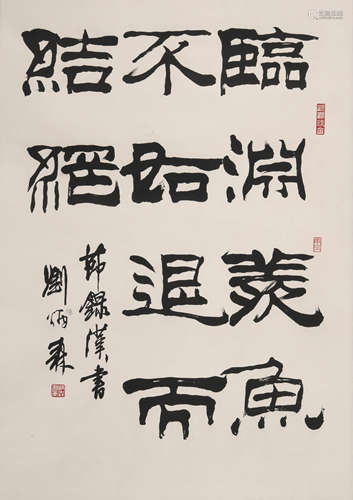 臨淵羡魚
不如退而
結網
節錄漢書
劉炳森